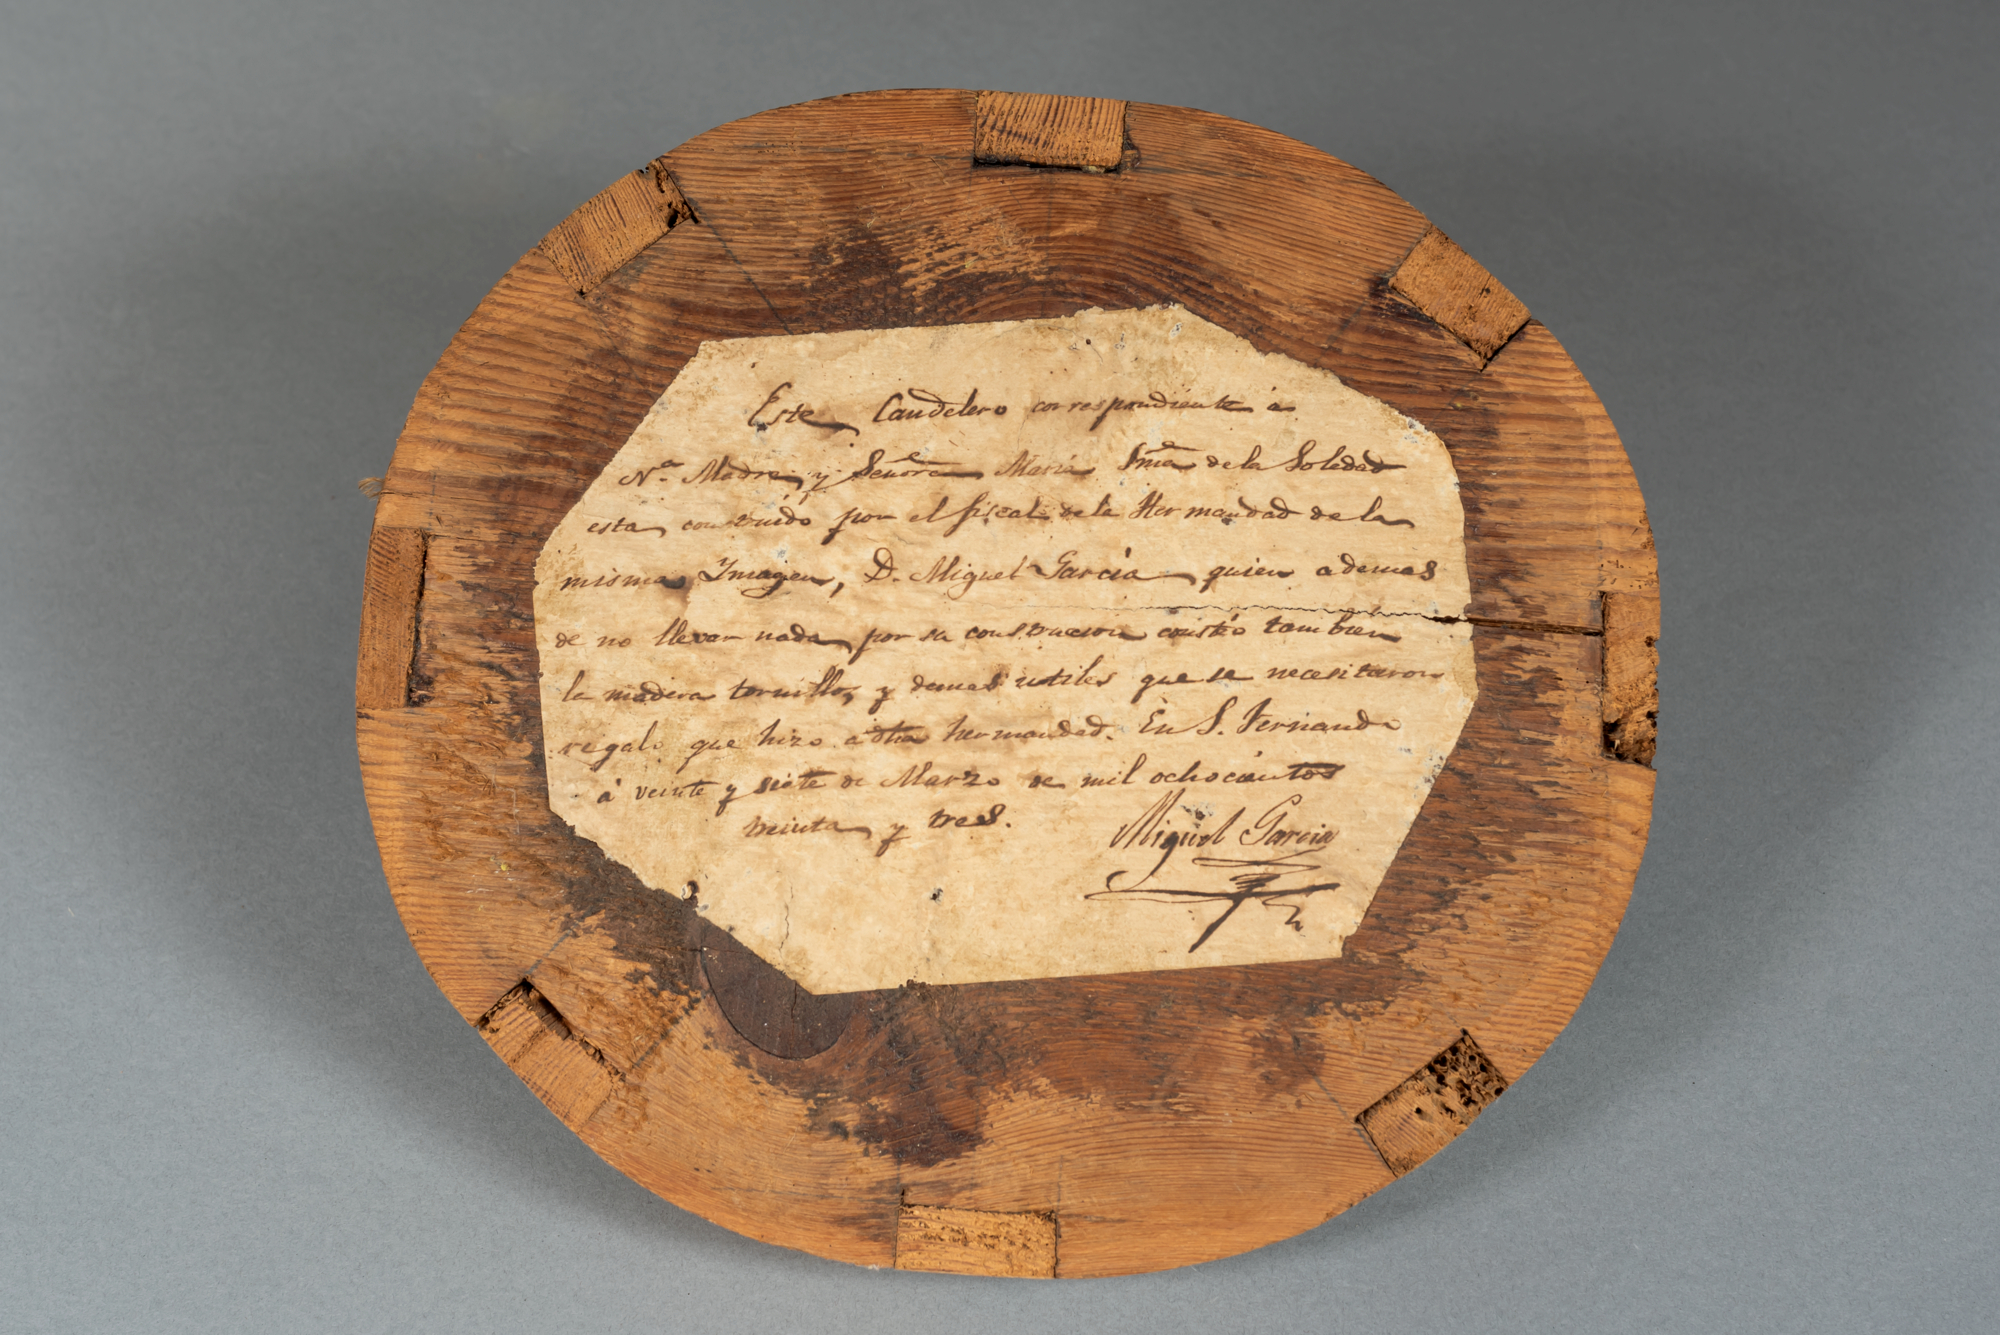 Este Candelero correspondiente à
N.ª Madre y Señora María Sma de la Soledad
esta construido por el fiscal de la Hermandad de la
misma Ymagen, D. Miguel Garcia quien ademas
de no llevar nada por su construcion costéo tambien
la madera tornillos, y demas utiles que se necesitaron
regalo que hizo a dha hermandad. En S. Fernando
á veinte y siete de Marzo de mil ochocientos
treinta y tres.
Miguel Garcia